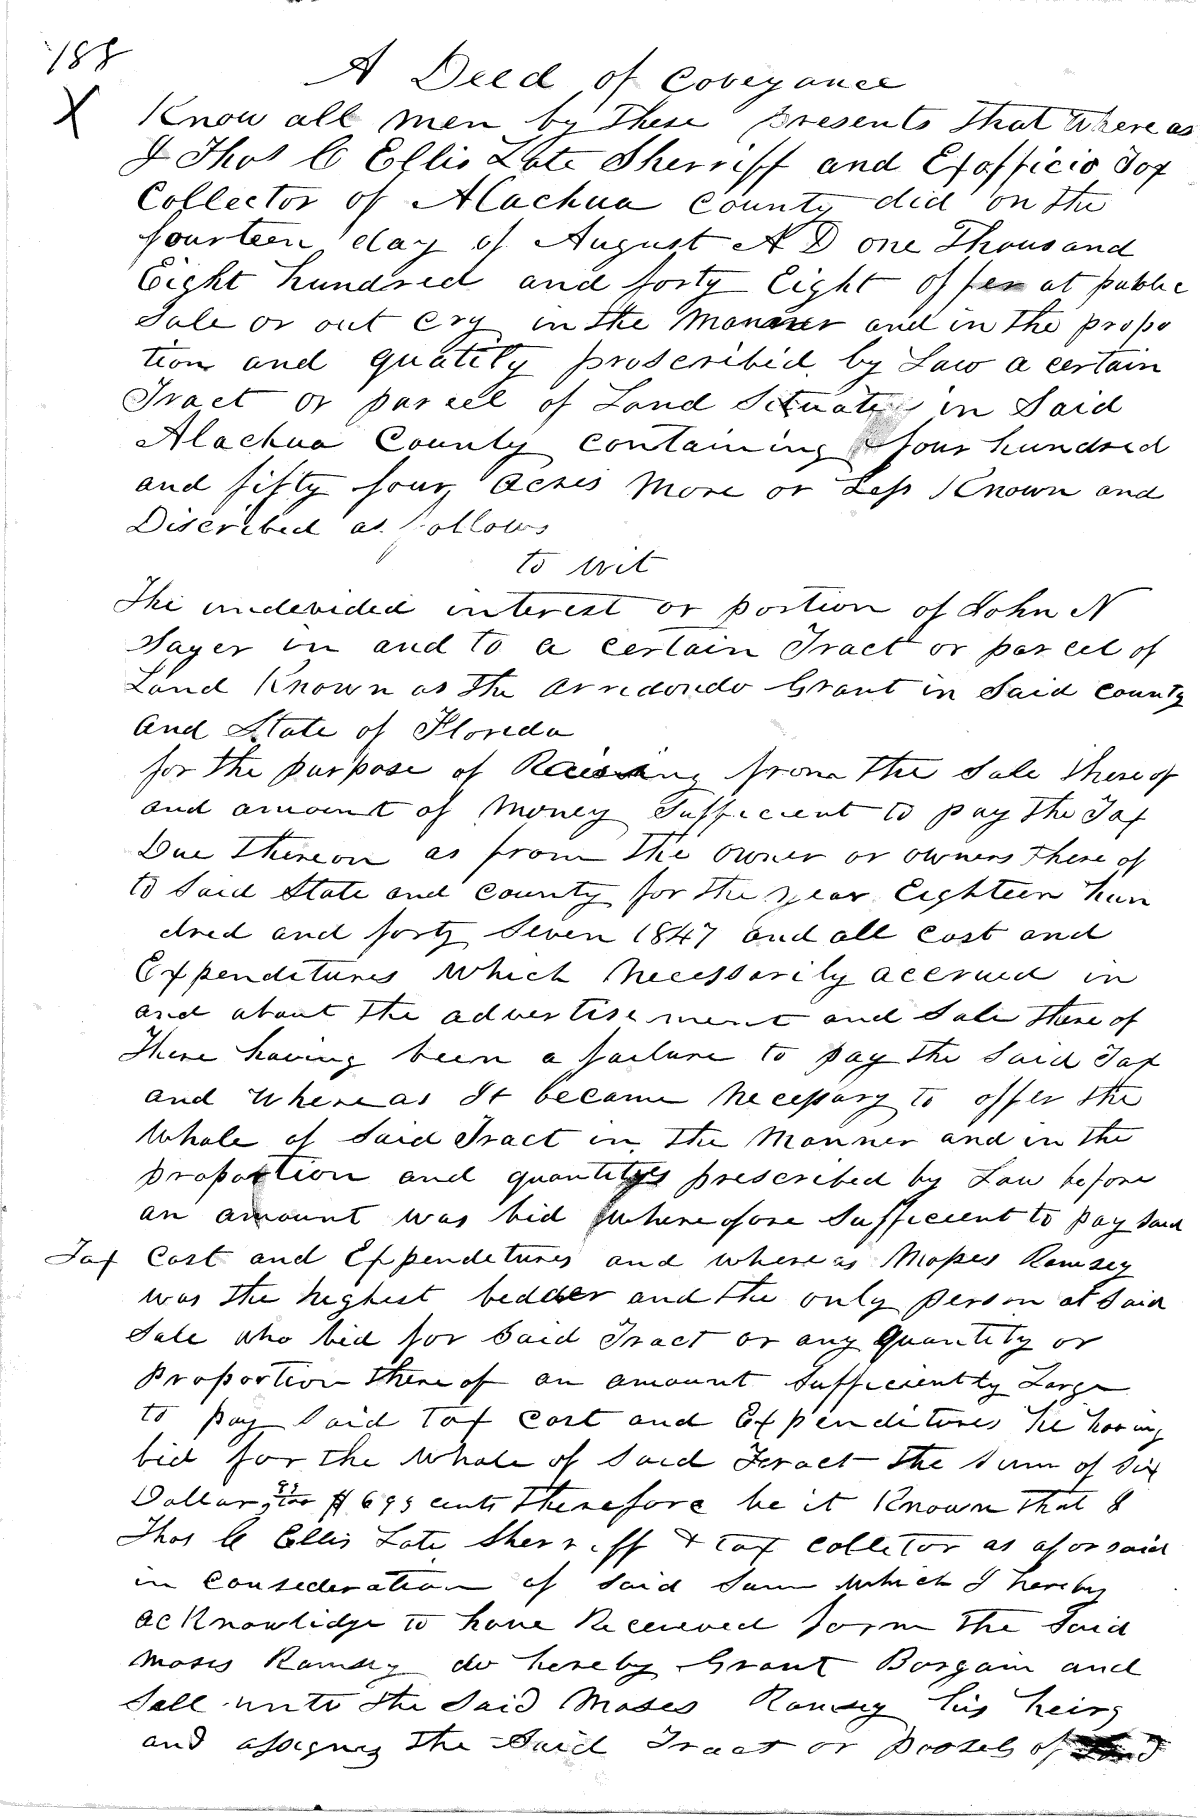 188
A Deed of Coveyance
X Know all men by these presents that whereas
I Thos C Ellis Late Sherriff and Exofficio Tax
Collector of Alachua County did on the
fourteen day of August A D one Thousand
Eight hundred and forty Eight offer at public
Sale or out cry in the Manner and in the propo
tion and quatity proscribid by Law a certain
Tract or parcel of Land Situate in Said
Alachua County containing four hundred
and fifty four acres More or Less Known and
Discribed as follows
to wit
The undevided interest or portion of John N
Sayer in and to a certain Tract or parcel of
Land Known as the arredondo Grant in Said County
and State of Florida
for the purpose of Raising from the Sale there of
and amount of Money Sufficient to pay the Tax
Due thereon as from the owner or owners there of
to Said State and County for the year Eighteen hun
dred and forty Seven 1847 and all cost and
Expenditures which necessarily accrued in
and about the advertisement and Sale there of
There having been a failure to pay the Said Tax
and whereas It became necessary to offer the
whole of Said Tract in the Manner and in the
proportion and quantitys prescribed by Law before
an amount was bid wherefore Sufficient to pay Said
Tax Cost and Expenditures and whereas Moses Ramsey
was the highest bedder and the only person at Said
Sale who bid for Said Tract or any Quantity or
Proportion there of an amount Sufficiently Large
to pay Said Tax cost and Expenditures he having
bid for the whole of Said Tract the Sum of Six
Dollars 99/100 $ 6 99 cents therefore be it Known that I
Thos C Ellis Late Sherriff & tax colletor as aforsaid
in Consederation of Said Sum which I hereby
acKnowlidge to have Receieved form the Said
Moses Ramsey do hereby Grant Bargain and
Sell unto the Said Moses Ramsey his heirs
and assignes the Said Tract or Poosels of Land